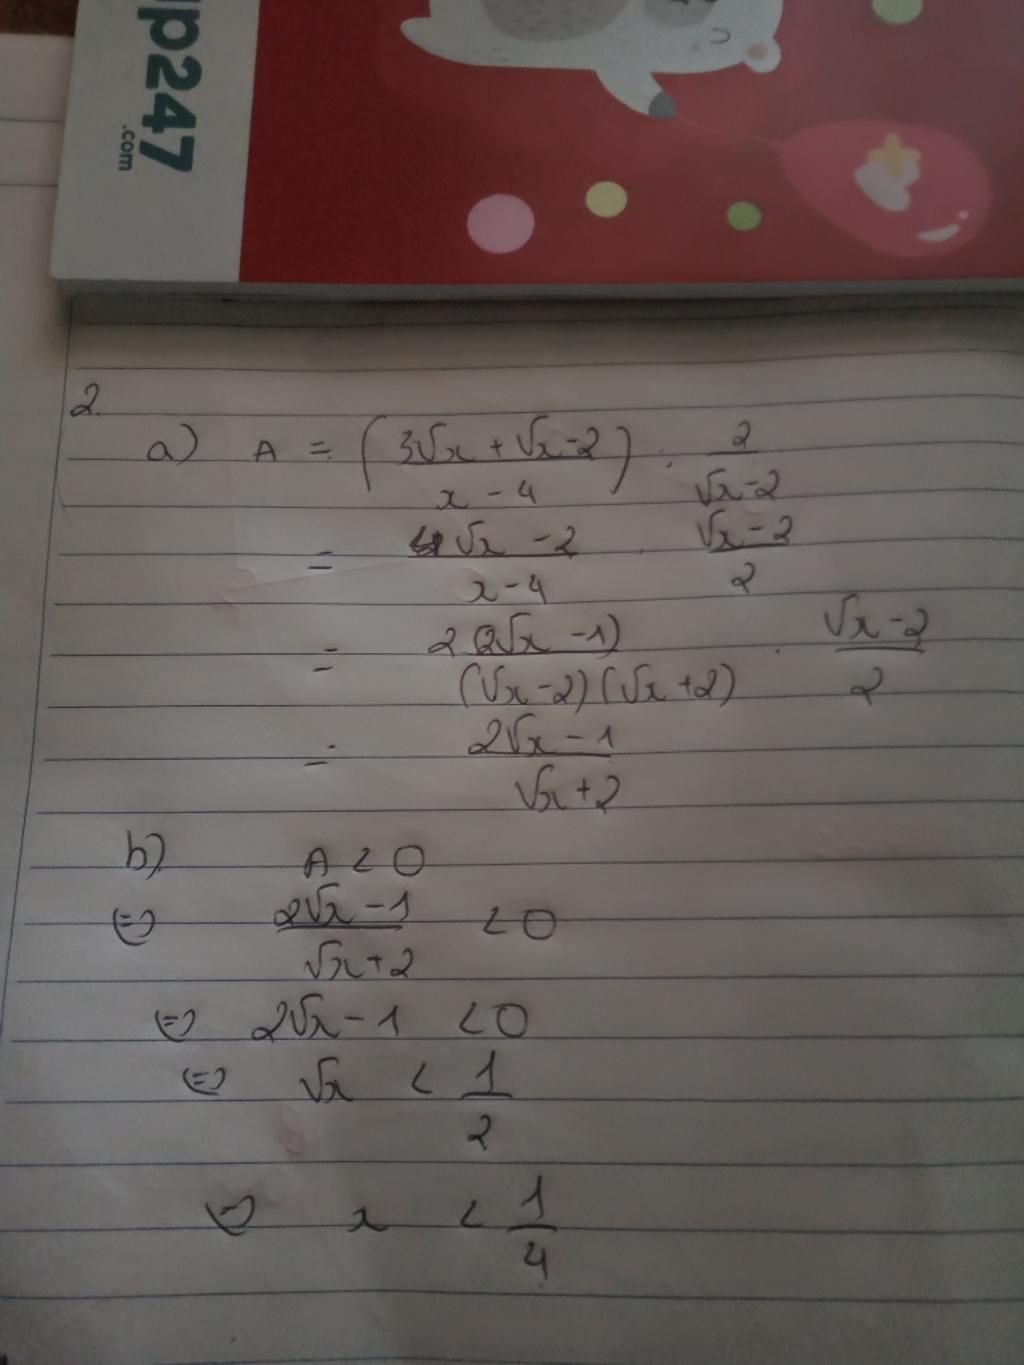 p247
.com
2.
a) A = (3√x + √x - 2 / x - 4) : 2 / √x - 2
= 4√x - 2 / x - 4 . √x - 2 / 2
= 2(2√x - 1) / (√x - 2)(√x + 2) . √x - 2 / 2
= 2√x - 1 / √x + 2
b) A < 0
⇔ 2√x - 1 / √x + 2 < 0
⇔ 2√x - 1 < 0
⇔ √x < 1 / 2
⇔ x < 1 / 4